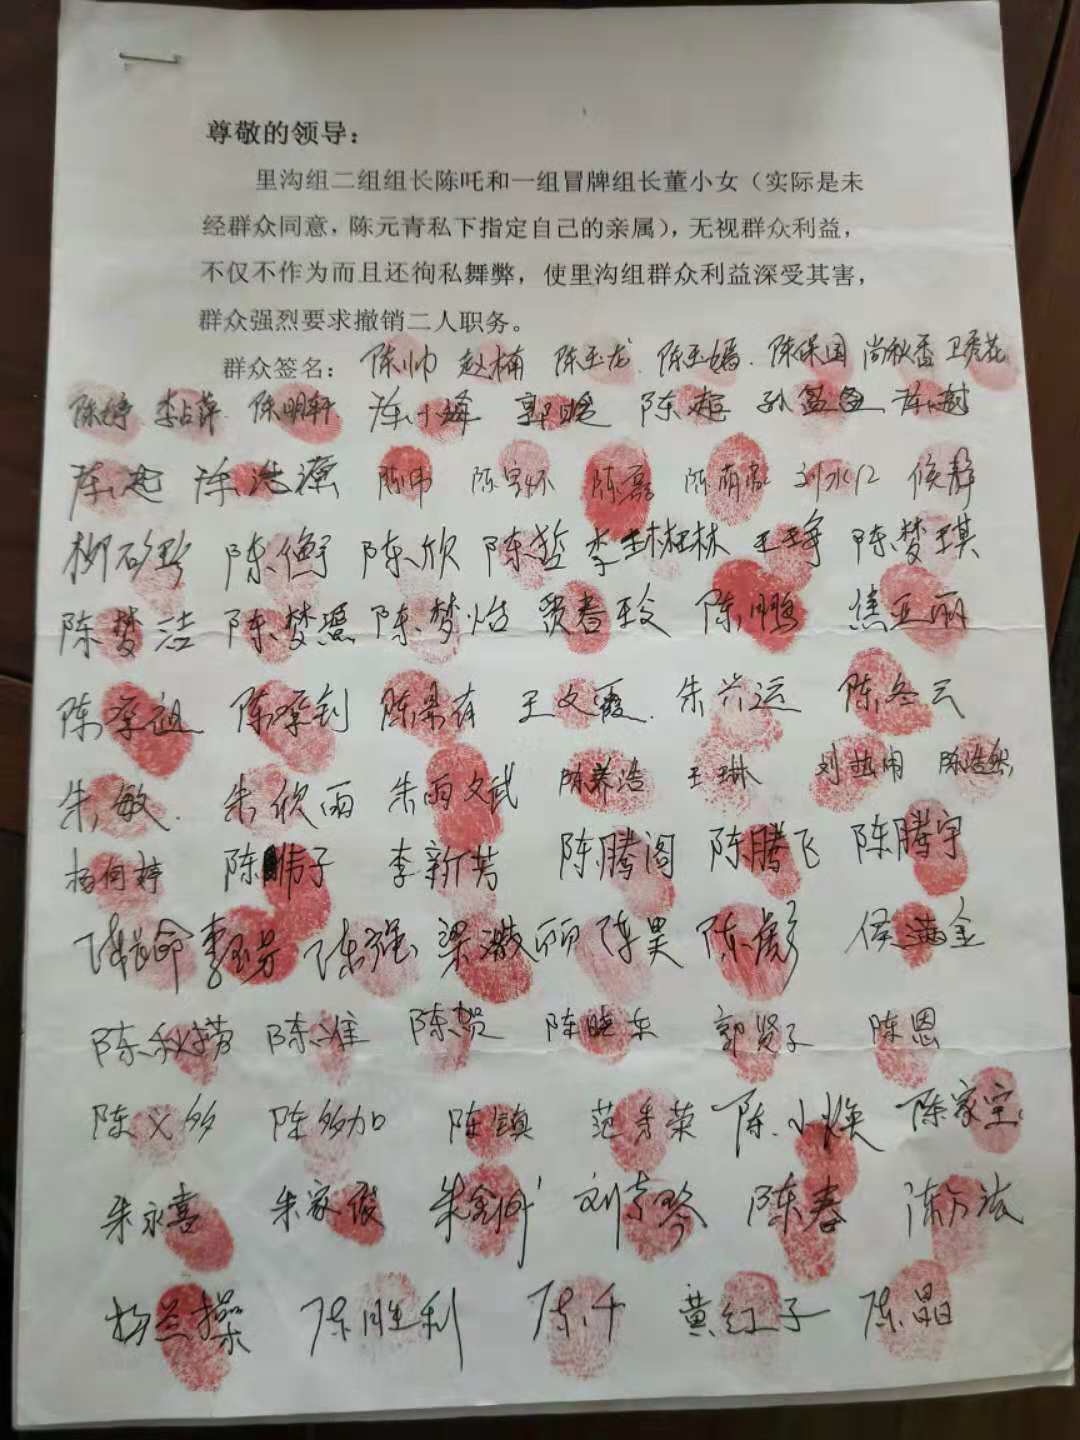 尊敬的领导：
里沟组二组组长陈吒和一组冒牌组长董小女（实际是未
经群众同意，陈元青私下指定自己的亲属），无视群众利益，
不仅不作为而且还徇私舞弊，使里沟组群众利益深受其害，
群众强烈要求撤销二人职务。
群众签名： 陈帅 赵楠 陈玉龙 陈玉嫣 陈保国 尚秋香 卫秀花
陈婷 李占萍 陈明轩 陈小峰 郭晓 陈超
陈浩源 陈伟 陈磊 陈萌 刘水仁 侯静
陈衡 陈欣 陈哲 王琤 陈梦琪
陈梦洁 陈梦瑶 陈梦怡 贾春玲 陈鹏 焦亚丽
陈希有 王文霞 朱兴运 陈冬云
朱敏 朱欣雨 朱雨斌 陈养浩 王琳 陈浩然
杨何婷 陈伟子 李新芳 陈腾阁 陈腾飞 陈腾宇
陈长命 李玉芳 陈强 梁淑丽 陈昊 陈彪 侯满金
陈秋菊 陈准 陈贺 陈晓东 郭贤子 陈恩
陈义多 陈多加 陈镇 范秀荣 陈小焕 陈家宝
朱永喜 朱家俊 朱金刚 刘京琴 陈春 陈方法
杨兰操 陈胜利 陈千 黄红子 陈晶